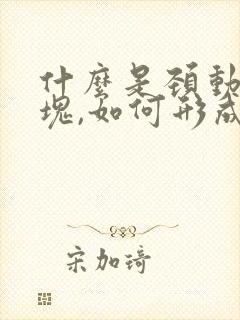 什麼是頸動
塊,如何形成
宋加琦